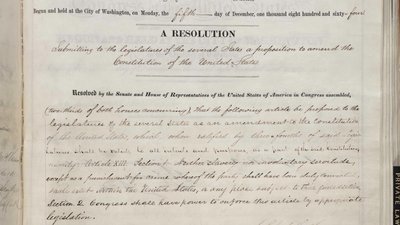 Begun and held at the City of Washington, on Monday, the fifth day of December, one thousand eight hundred and sixty-four
A RESOLUTION
Submitting to the legislatures of the several States a proposition to amend the
Constitution of the United States
Resolved by the Senate and House of Representatives of the United States of America in Congress assembled,
(two-thirds of both houses concurring), That the following article be proposed to the
legislatures of the several states as an amendment to the Constitution
of the United States, which, when ratified by three-fourths of said
shall be valid, to all intents and purposes, as a part of the said Constitution
namely: Article XIII. Section 1. Neither slavery nor involuntary servitude,
except as a punishment for crime whereof the party shall have been duly convicted,
shall exist within the United States, or any place subject to their jurisdiction.
Section 2. Congress shall have power to enforce this article by appropriate
legislation.
PRIVATE LAW